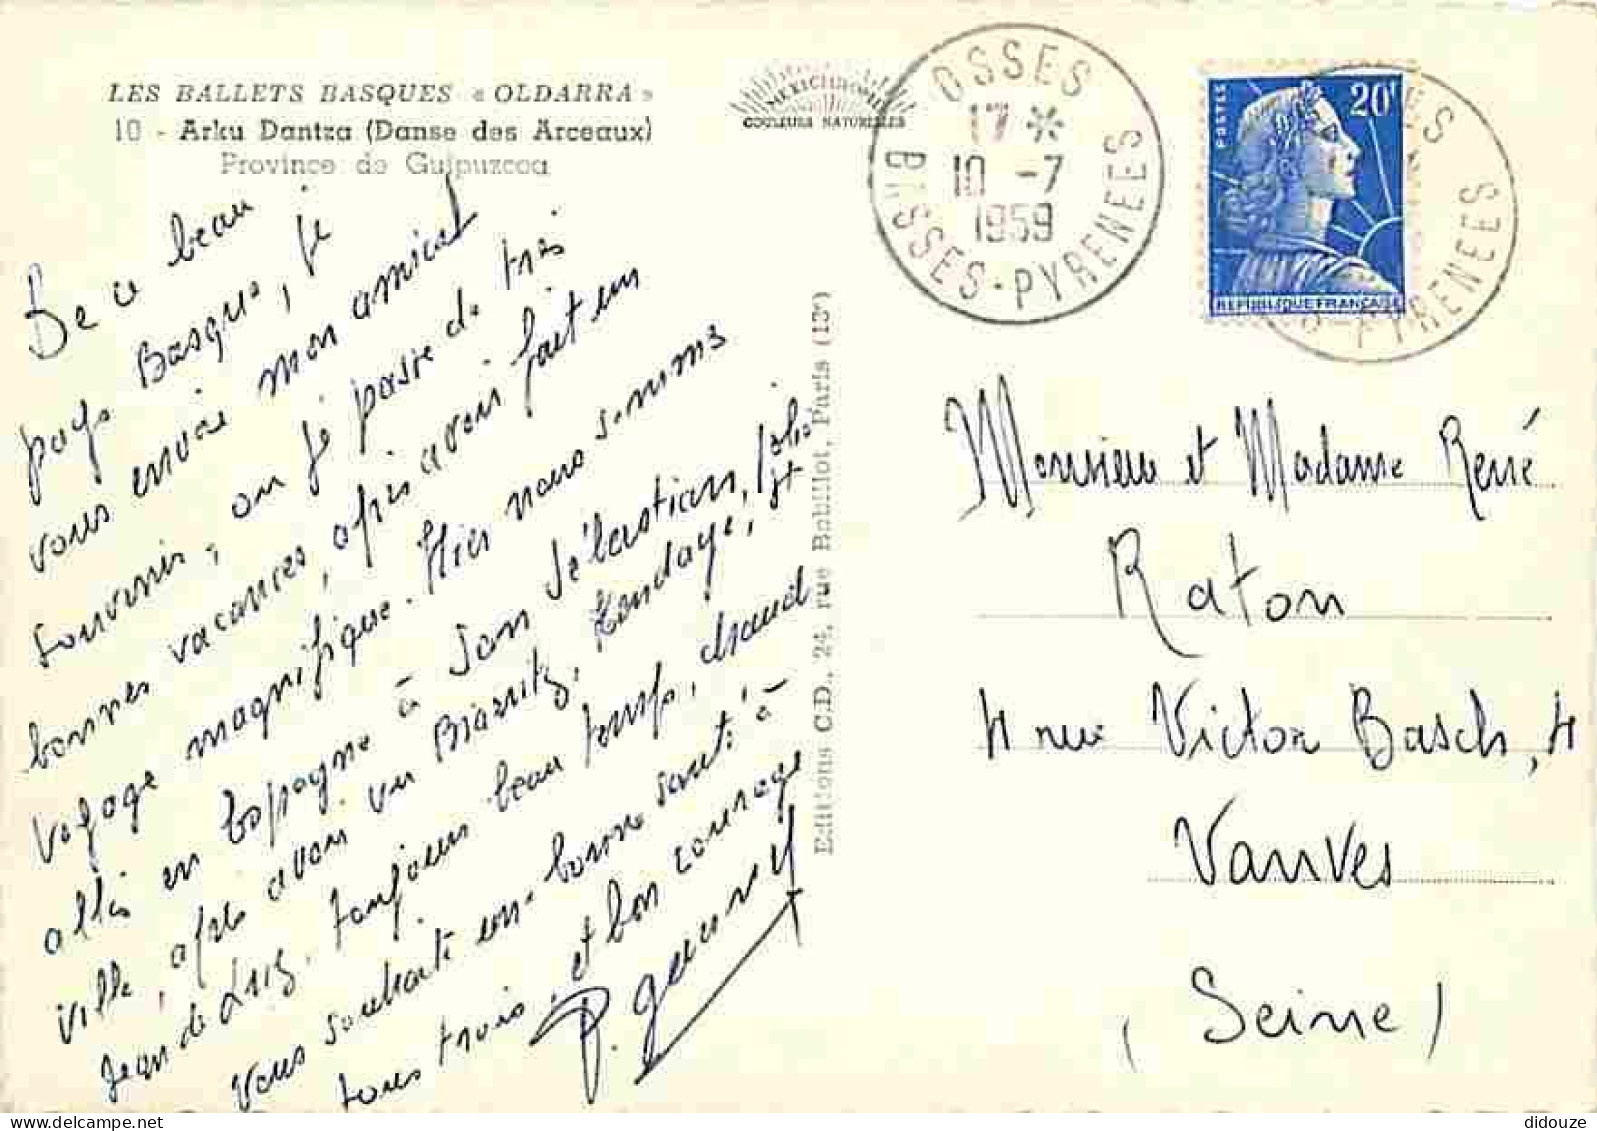 LES BALLETS BASQUES « OLDARRA »
10 - Arku Dantza (Danse des Arceaux)
Province de Guipuzcoa
MEXICHROME
COULEURS NATURELLES
OSSES
17 *
10 - 7
1959
BASSES-PYRENEES
POSTES
20F
REPUBLIQUE FRANÇAISE
PYRENEES
De ce beau
pays Basque, je
vous envoie mon amical
souvenir, où je passe de très
bonnes vacances, après avoir fait un
voyage magnifique. Hier nous sommes
allés en Espagne à San Sébastian, jolie
ville, après avoir vu Biarritz, Hendaye, St
Jean de Luz. Toujours beau temps, chaud
vous souhaite une bonne santé à
tous trois, et bon courage
Editions C.D., 24, rue Bobillot, Paris (13e)
Monsieur et Madame René
Raton
4 rue Victor Basch, 4
Vanves
(Seine)
didouze